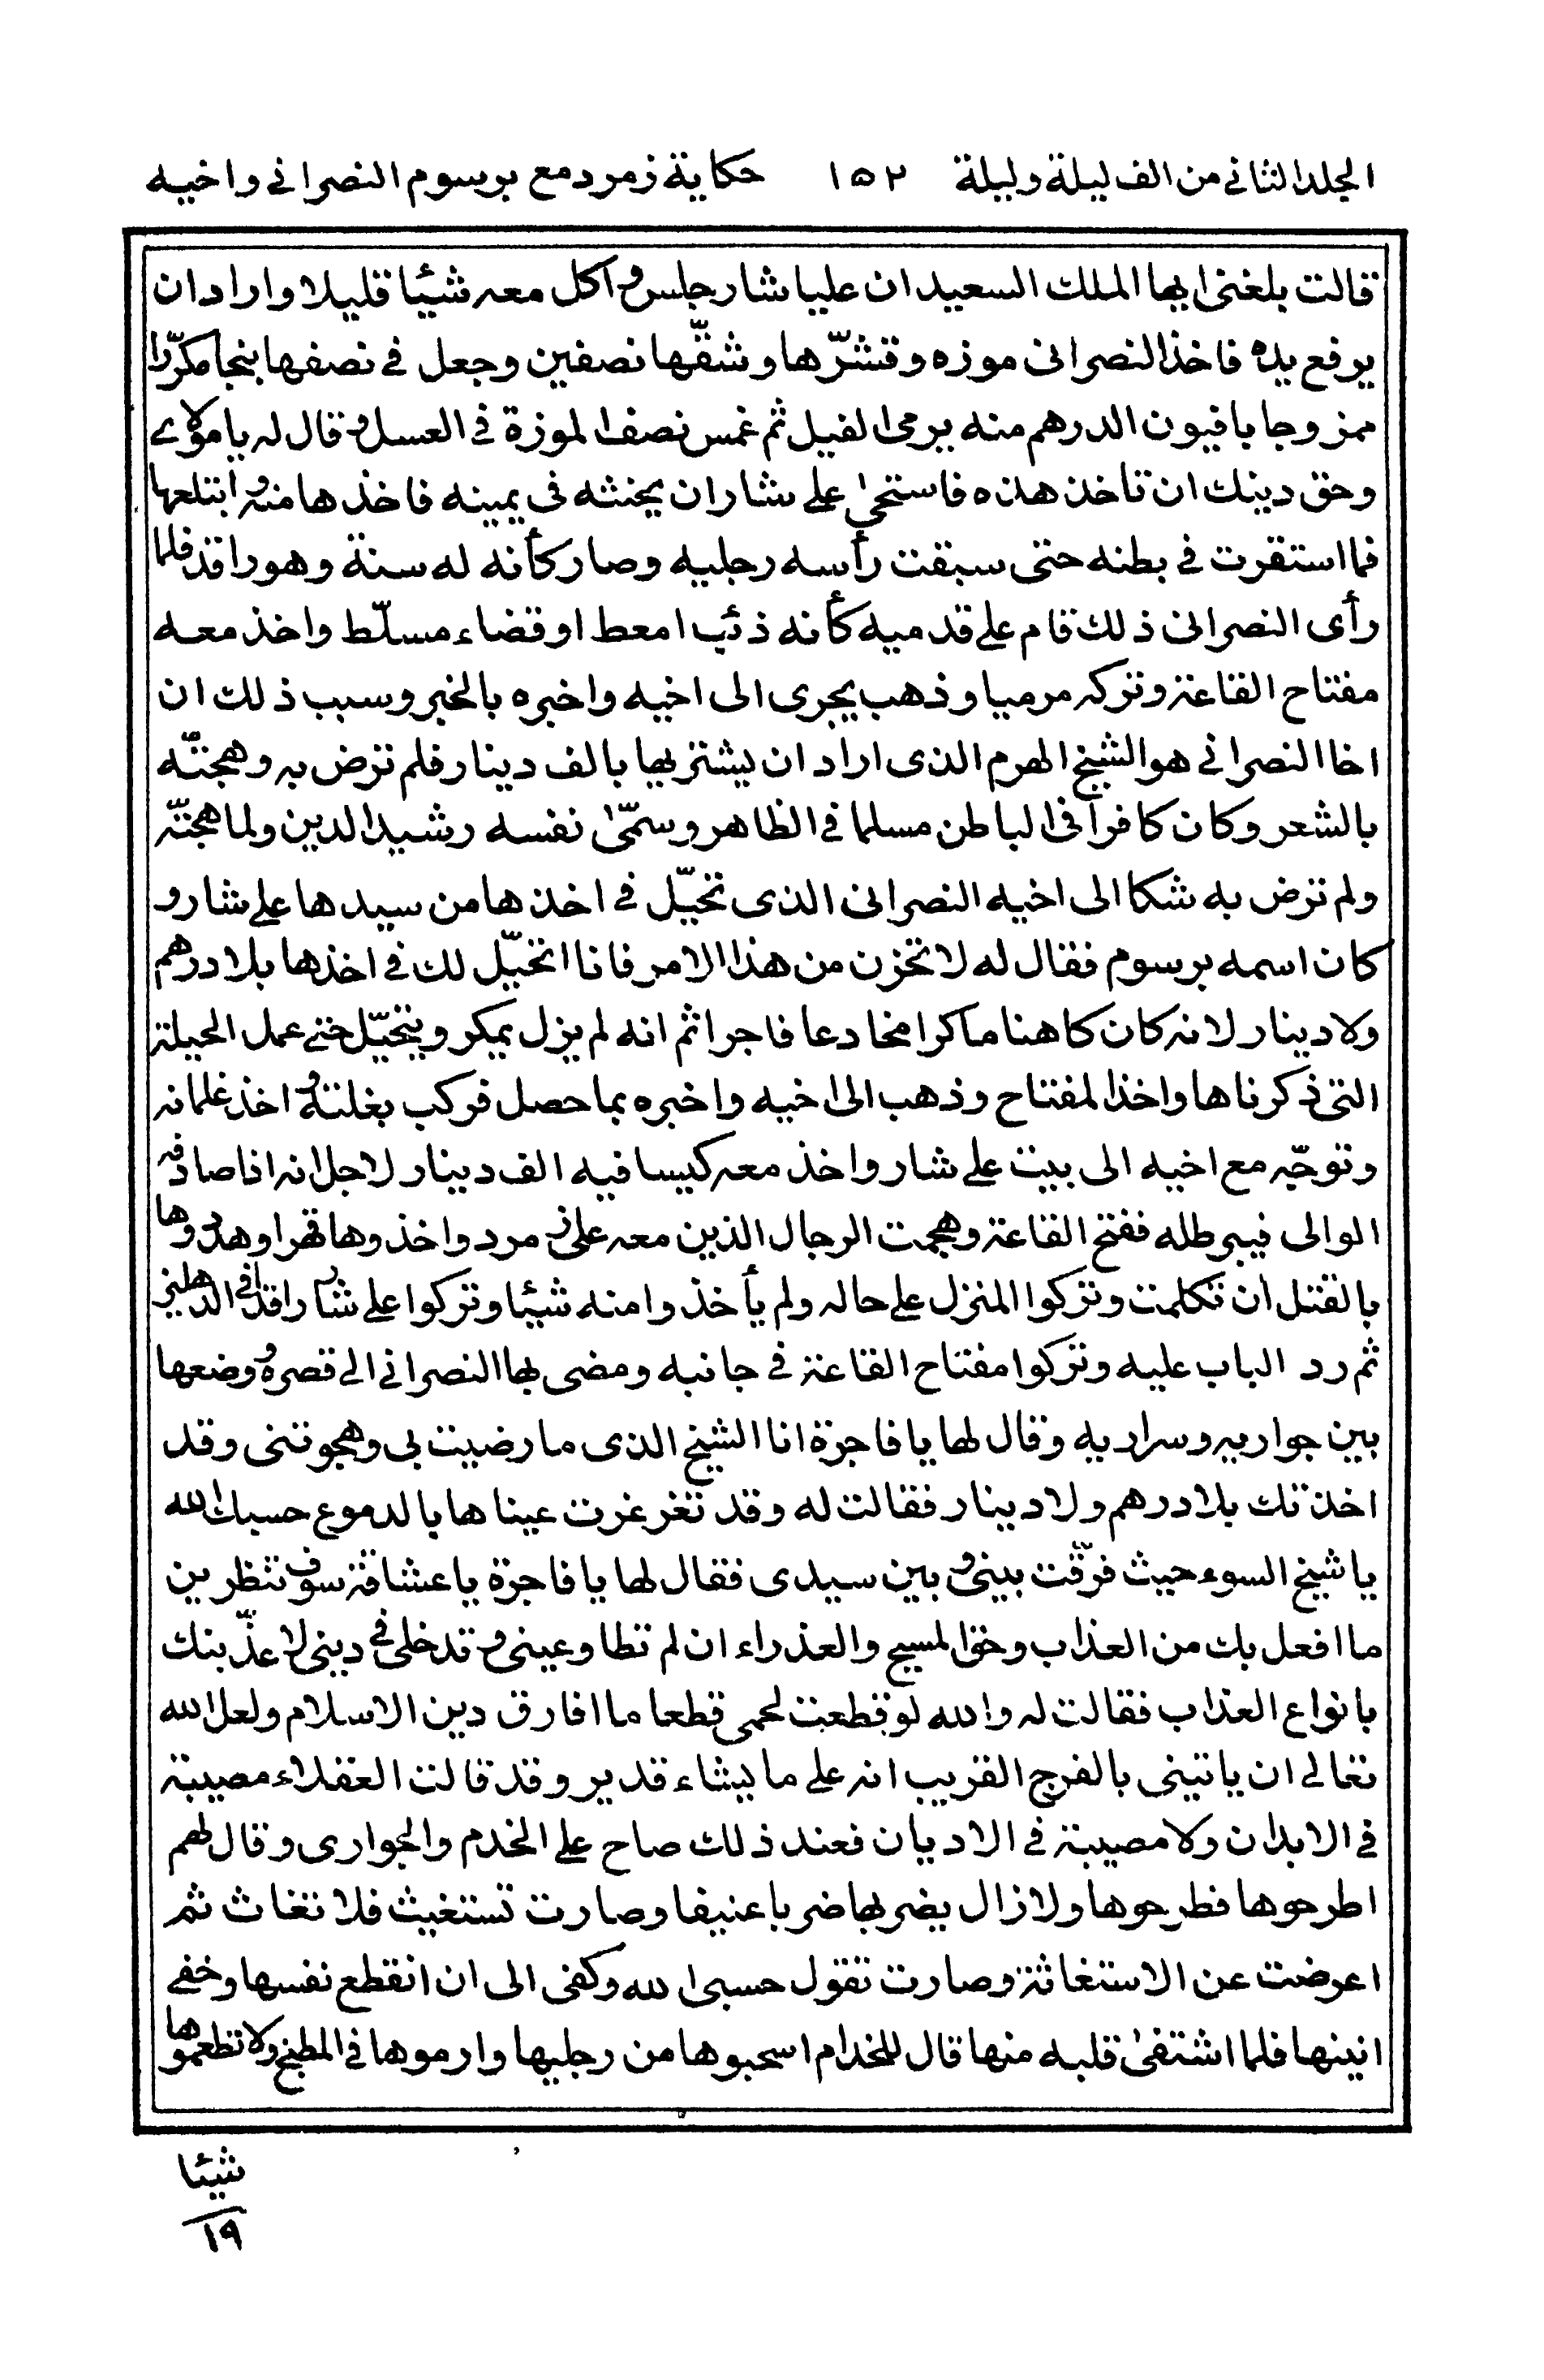 المجلد الثاني من الف ليلة وليلة ١٥٢ حكاية زمرد مع برسوم النصراني واخيه
قالت بلغني ايها الملك السعيد ان عليا شار جلس و اكل معه شيئا قليلا و اراد ان
يرفع يده فاخذ النصرانى موزه و قشّرها و شقّها نصفين و جعل فى نصفها بنجا مكرّرا
ممزوجا بافيون الدرهم منه يرمى الفيل ثم غمس نصف الموزة فى العسل و قال له يا مولاى
وحق دينك ان تاخذ هذه فاستحىٰ على شار ان يحنثه فى يمينه فاخذها منه و ابتلعها
فما استقرت فى بطنه حتى سبقت رأسه رجليه وصار كأنه له سنة وهو راقد فلما
رأى النصرانى ذلك قام على قدميه كأنه ذئب امعط او قضاء مسلّط واخذ معه
مفتاح القاعة وتركه مرميا وذهب يجرى الى اخيه واخبره بالخبر وسبب ذلك ان
اخا النصرانى هو الشيخ الهرم الذى اراد ان يشتريها بالف دينار فلم ترض به وهجتّه
بالشعر وكان كافرا فى الباطن مسلما فى الظاهر وسمّىٰ نفسه رشيد الدين ولما هجتّه
ولم ترض به شكا الى اخيه النصرانى الذى تحيّل فى اخذها من سيدها على شار و
كان اسمه برسوم فقال له لا تحزن من هذا الامر فانا اتحيّل لك فى اخذها بلا درهم
ولا دينار لانه كان كاهنا ماكرا مخادعا فاجرا ثم انه لم يزل يمكر ويتحيّل حتى عمل الحيلة
التى ذكرناها واخذ المفتاح وذهب الى اخيه واخبره بما حصل فركب بغلته و اخذ غلمانه
وتوجّه مع اخيه الى بيت على شار واخذ معه كيسا فيه الف دينار لاجل انه اذا صادفه
الوالى فيبرطله ففتح القاعة وهجمت الرجال الذين معه على زمرد واخذوها قهرا وهدّدوها
بالقتل ان تكلمت وتركوا المنزل على حاله ولم يأخذوا منه شيئا وتركوا على شار راقدا فى الدهليز
ثم رد الباب عليه وتركوا مفتاح القاعة فى جانبه ومضى بها النصرانى الى قصره و وضعها
بين جواريه وسراريه وقال لها يا فاجرة انا الشيخ الذى ما رضيت بى وهجوتنى وقد
اخذتك بلا درهم ولا دينار فقالت له وقد تغرغرت عيناها بالدموع حسبك الله
يا شيخ السوء حيث فرّقت بينى و بين سيدى فقال لها يا فاجرة يا عشاقة سوف تنظرين
ما افعل بك من العذاب وحق المسيح والعذراء ان لم تطاوعينى و تدخلى فى دينى لاعذّبنك
بانواع العذاب فقالت له والله لو قطعت لحمى قطعا ما افارق دين الاسلام ولعل الله
تعالى ان ياتينى بالفرج القريب انه على ما يشاء قدير وقد قالت العقلاء مصيبة
فى الابدان ولا مصيبة فى الاديان فعند ذلك صاح على الخدم والجوارى وقال لهم
اطرحوها فطرحوها ولا زال يضربها ضربا عنيفا وصارت تستغيث فلا تغاث ثم
اعرضت عن الاستغاثة وصارت تقول حسبى الله وكفى الى ان انقطع نفسها وخفى
انينها فلما اشتفىٰ قلبه منها قال للخدام اسحبوها من رجليها وارموها فى المطبخ ولا تطعموها
شيئا
١٩